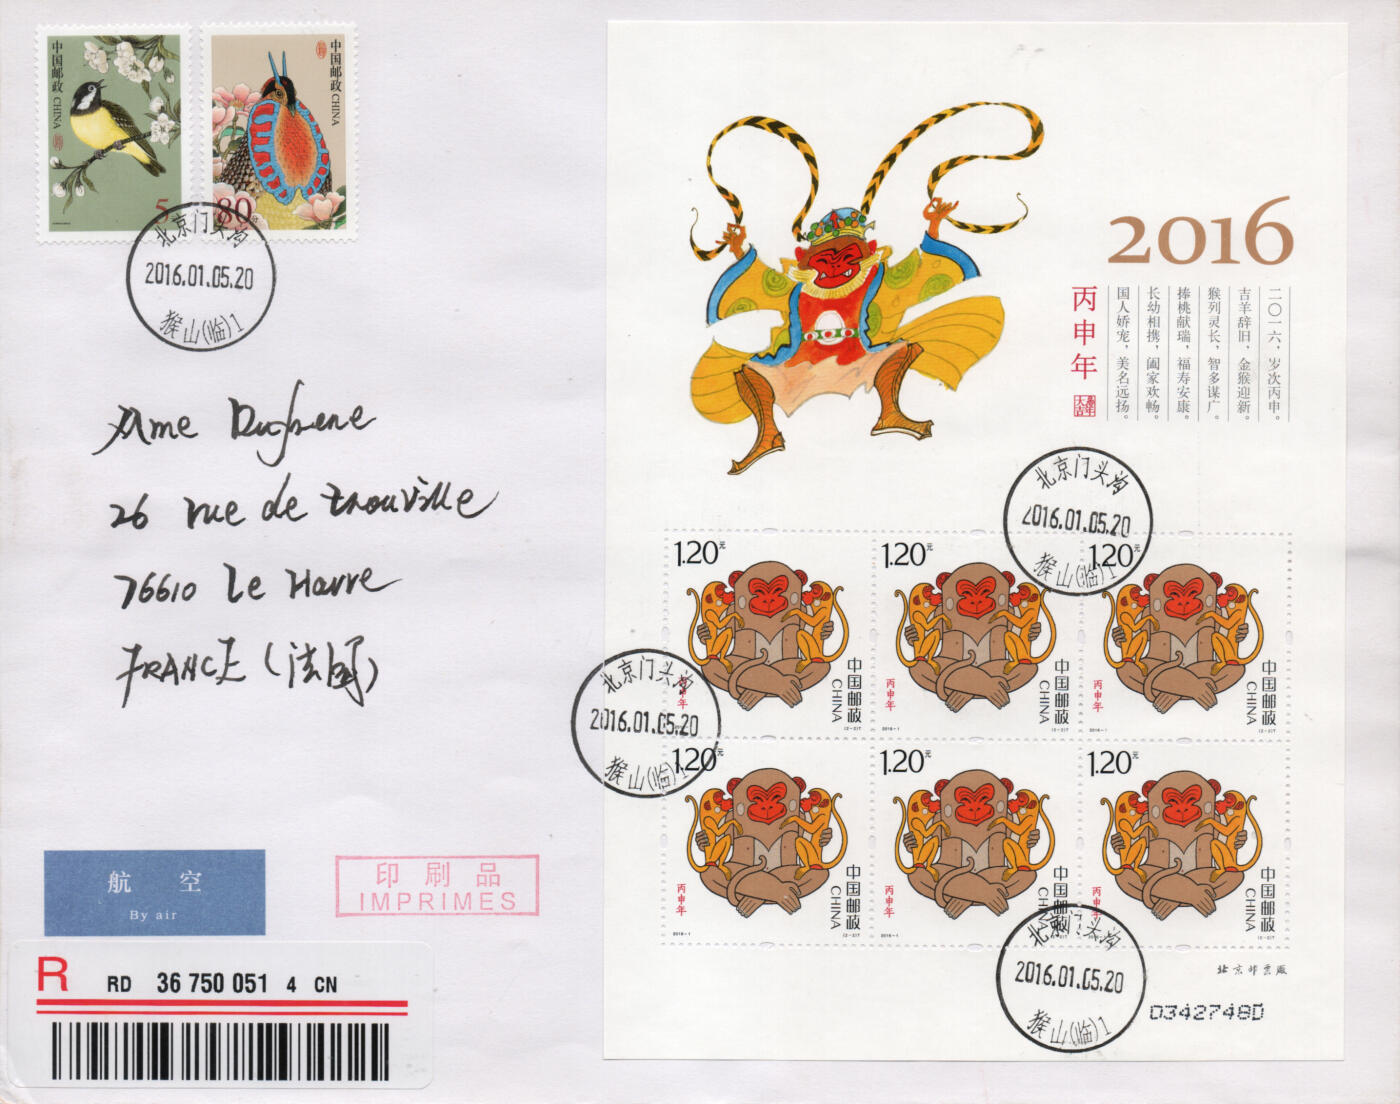 中国邮政 CHINA
5
中国邮政 CHINA
80
北京门头沟
2016.01.05.20
猴山(临)1
26 rue de Trouville
76610 Le Havre
FRANCE (法国)
航空
By air
印刷品
IMPRIMES
R
RD 36 750 051 4 CN
2016
丙申年
二〇一六，岁次丙申。
吉羊辞旧，金猴迎新。
猴列灵长，智多谋广。
捧桃献瑞，福寿安康。
长幼相携，阖家欢畅。
国人娇宠，美名远扬。
北京门头沟
2016.01.05.20
猴山(临)1
1.20元
丙申年
中国邮政
CHINA
2016-1
(2-2)T
1.20元
丙申年
中国邮政
CHINA
2016-1
(2-2)T
1.20元
丙申年
中国邮政
CHINA
2016-1
(2-2)T
北京门头沟
2016.01.05.20
猴山(临)1
1.20元
丙申年
中国邮政
CHINA
2016-1
(2-2)T
1.20元
丙申年
中国邮政
CHINA
2016-1
(2-2)T
1.20元
丙申年
中国邮政
CHINA
2016-1
(2-2)T
北京门头沟
2016.01.05.20
猴山(临)1
北京邮票厂
03427480